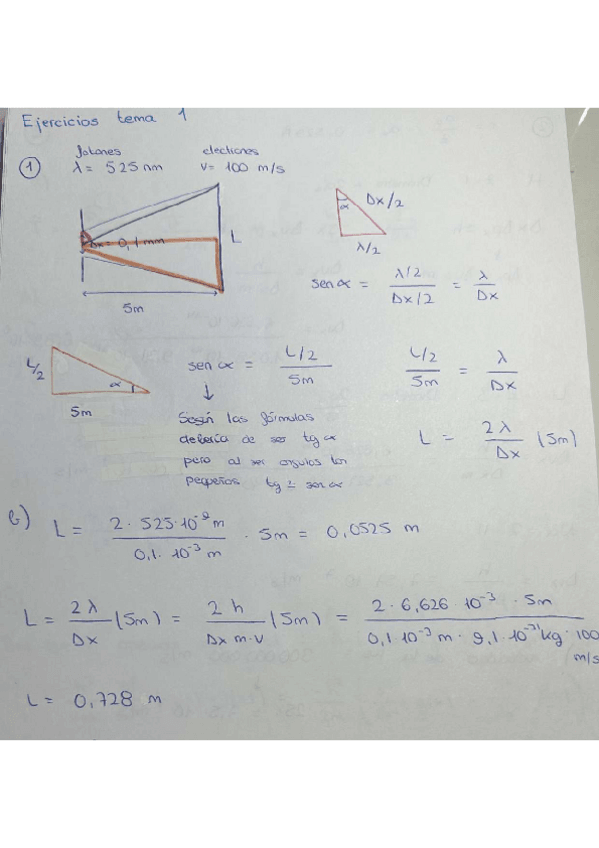 Ejercicios tema 1
① fotones electrones
λ = 525 nm v = 100 m/s
Δx = 0,1 mm
L
5m
α Δx/2
λ/2
sen α = λ/2 / Δx/2 = λ / Δx
L/2
α
5m
sen α = L/2 / 5m
L/2 / 5m = λ / Δx
↓
Según las fórmulas
debería de ser tg α
pero al ser angulos tan
pequeños tg ≃ sen α
L = 2λ / Δx (5m)
b) L = 2 · 525·10⁻⁹ m / 0,1 · 10⁻³ m · 5m = 0,0525 m
L = 2λ / Δx (5m) = 2h / Δx m·v (5m) = 2 · 6,626 · 10⁻³ · 5m / 0,1·10⁻³ m · 9,1·10⁻³¹ kg · 100 m/s
L = 0,728 m